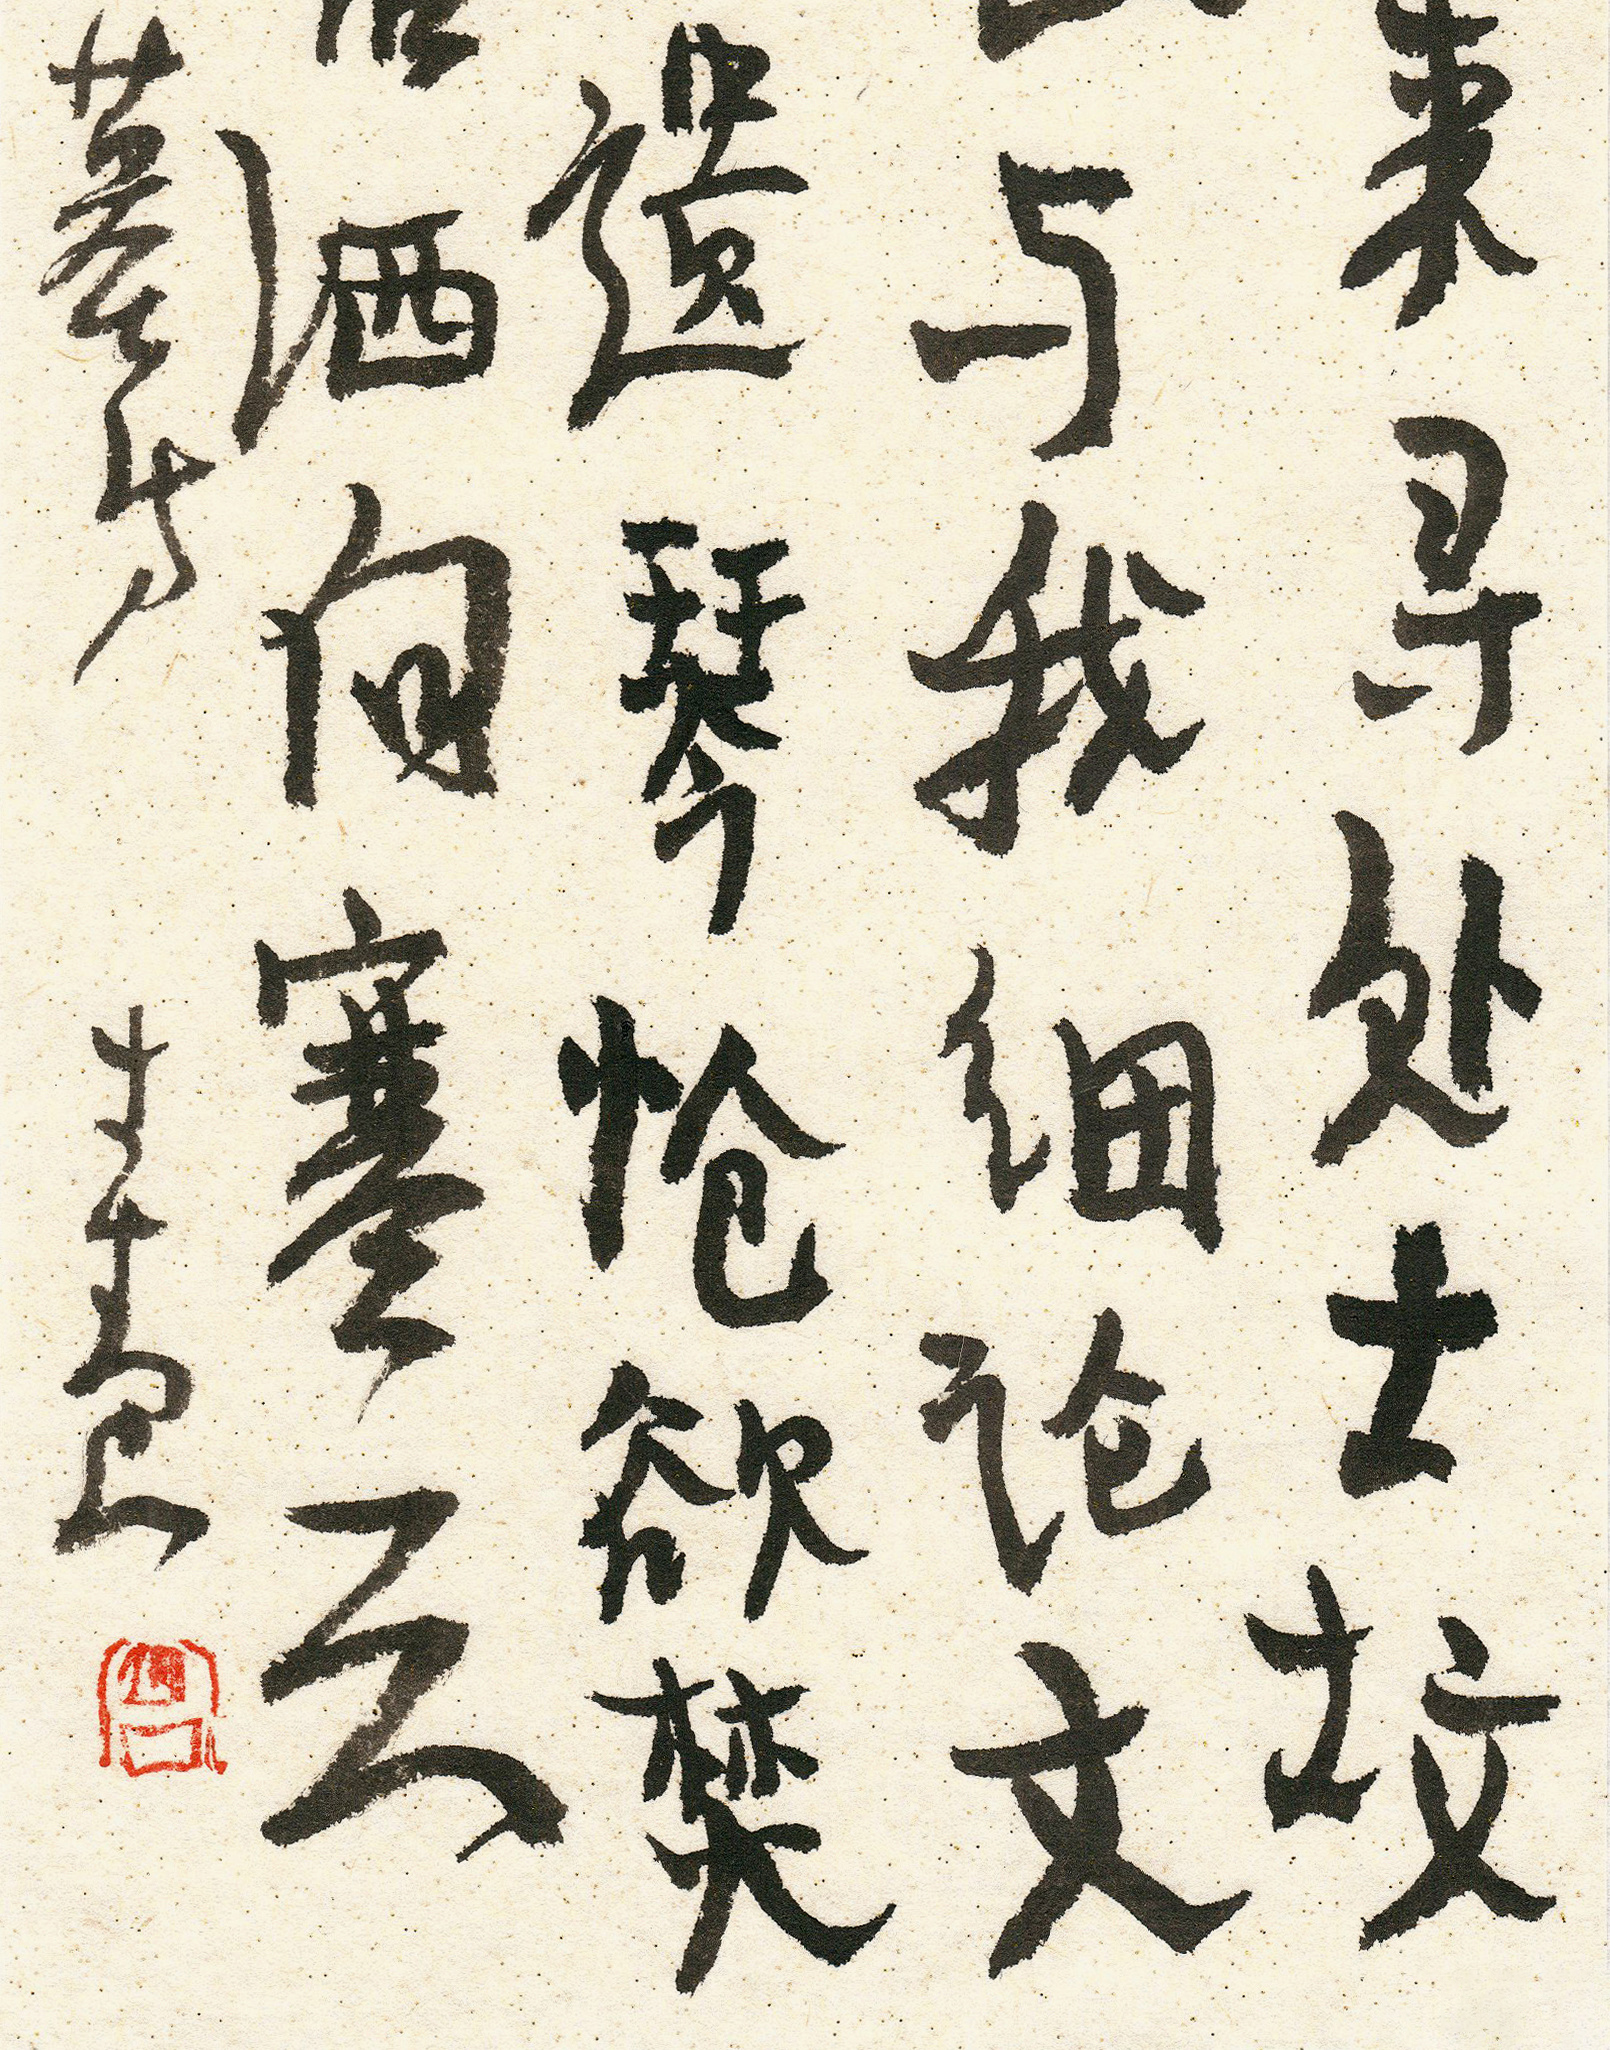 来寻处士坟
与我细论文
遗琴怆欲焚
洒向寒云